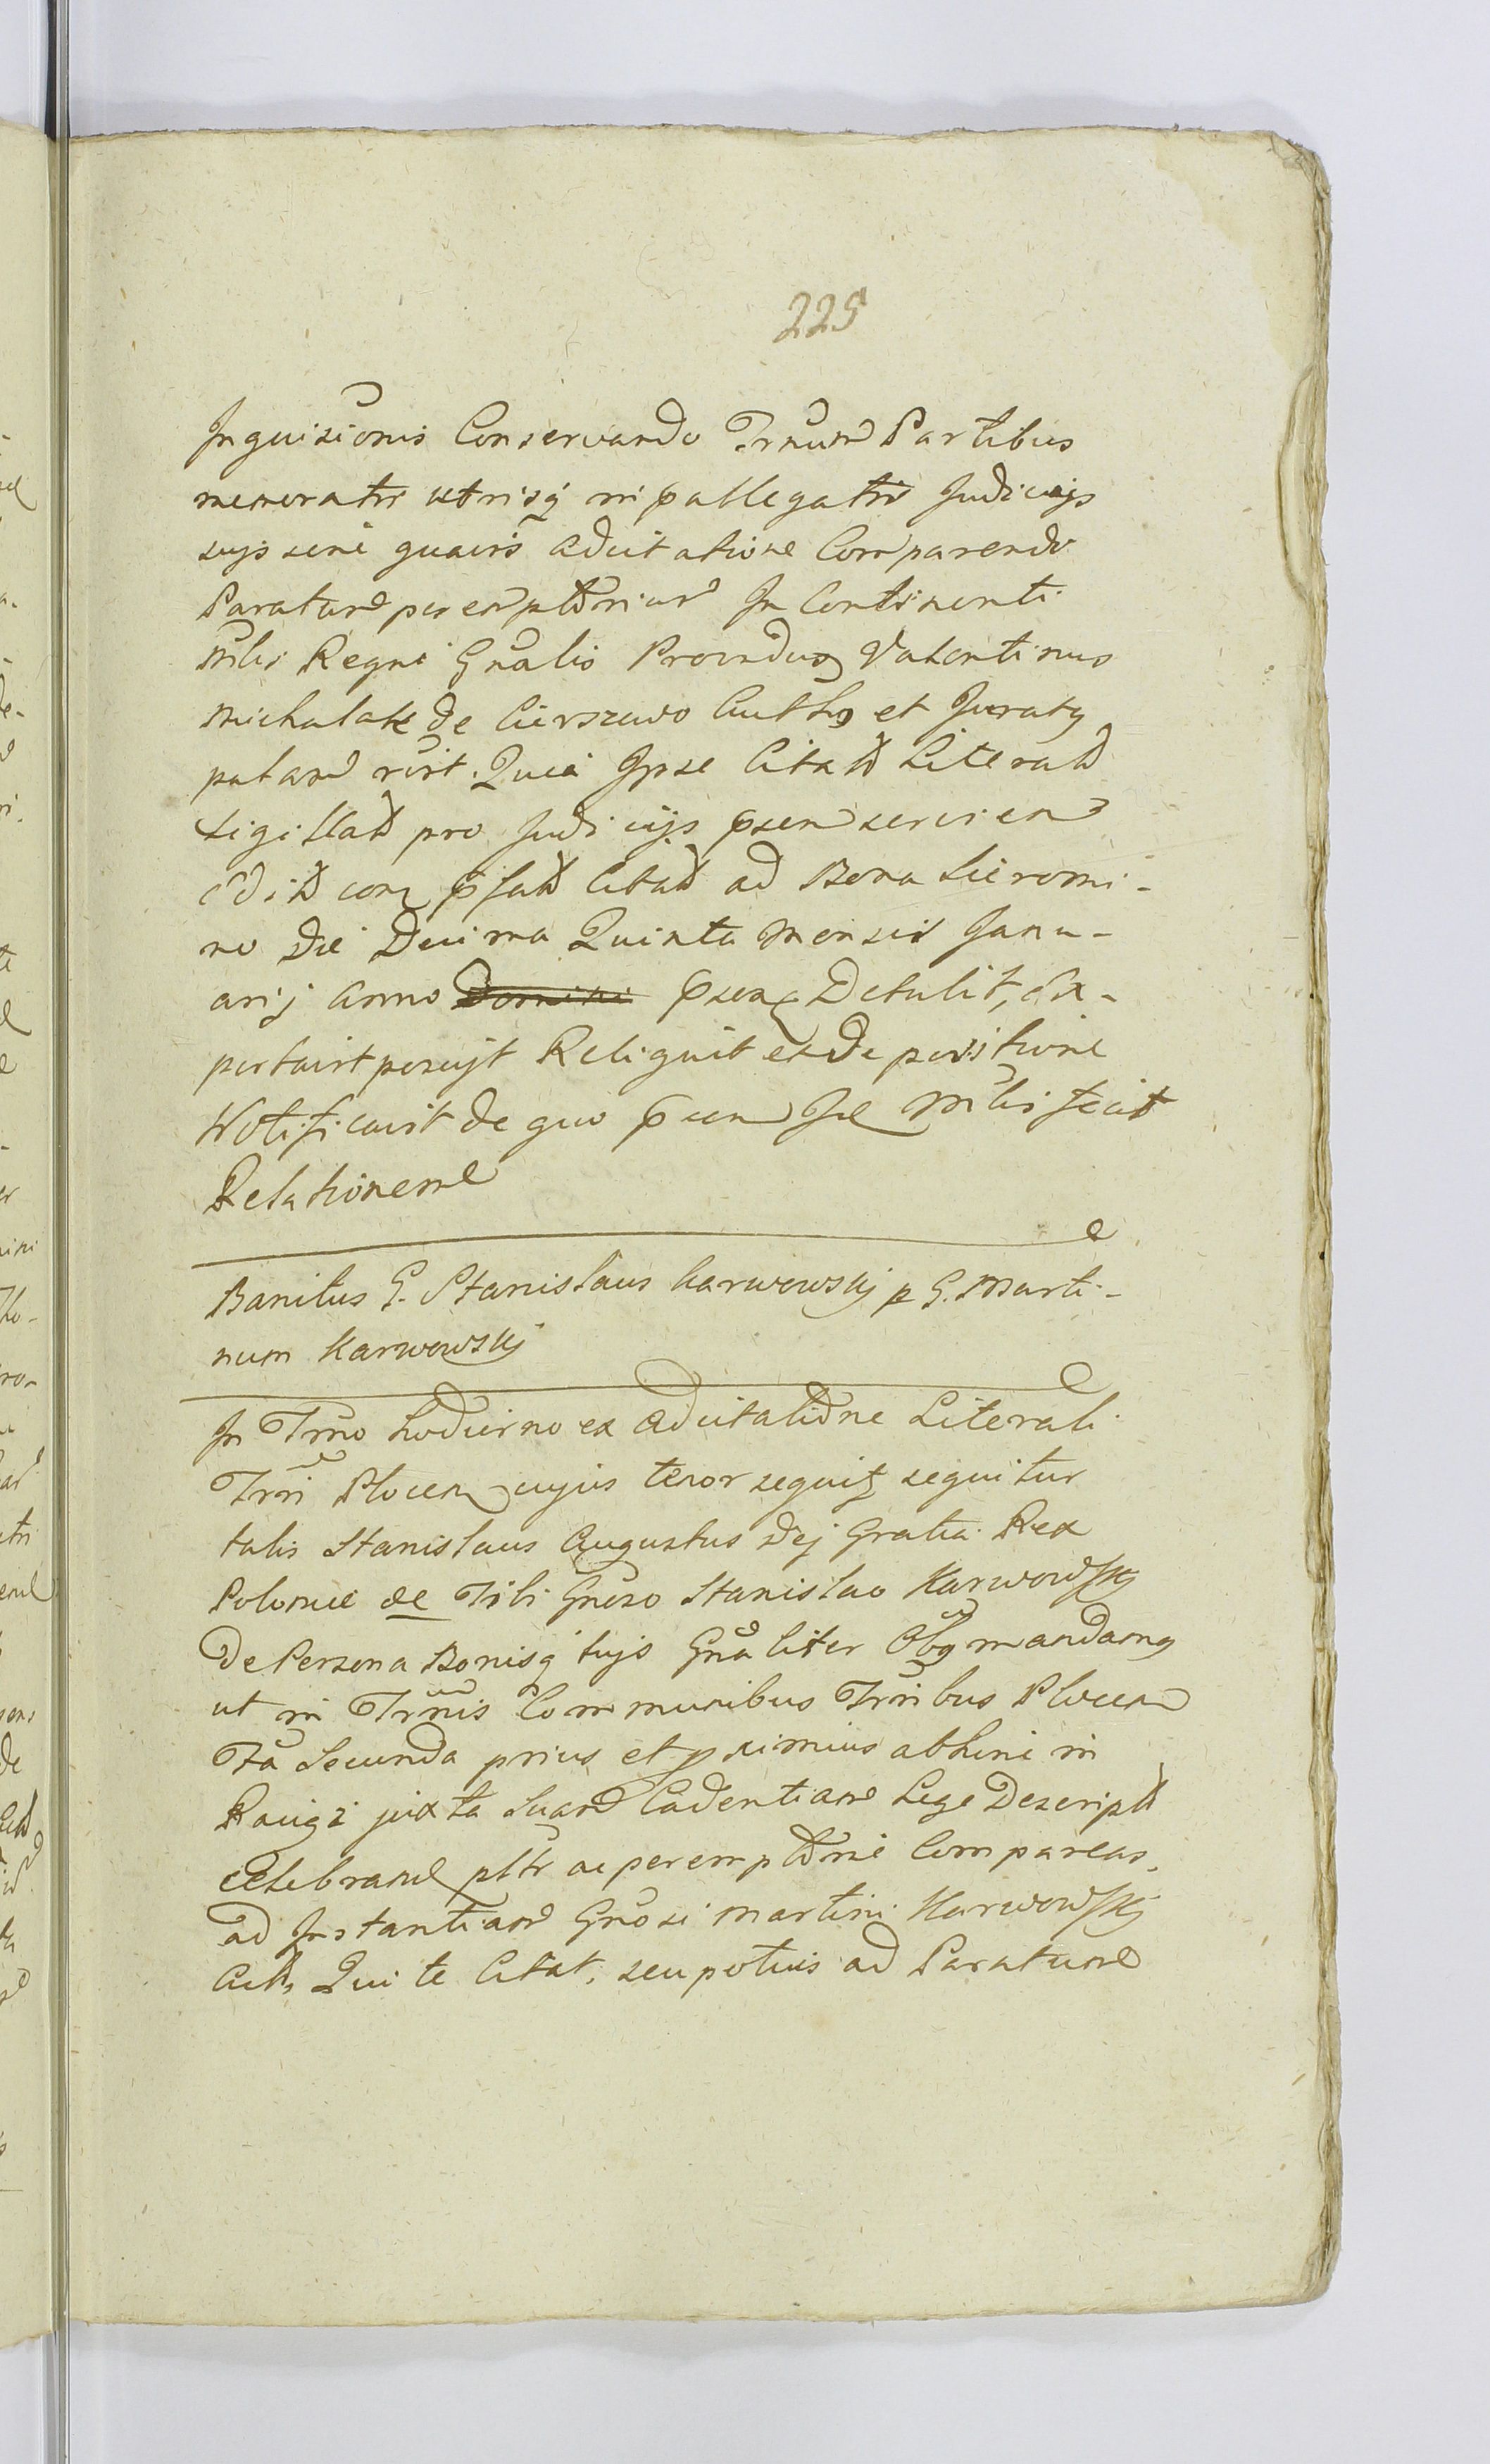 225
Inquisionis Conservando Trnum Partibus
memoratis utrisq in pallegatis Judicijs
suis sine quavis adcitatione Comparendo
Paratum peremptorium In Continenti
Mlis Regni Gnalis Providus Valentinus
Michalak de Cierszewo Auth et Juratq
palam rcvit. Quia Ipse Citatt Literatt
Sigillatt pro Judicijs psen servien
editt conq psatt Citatt ad Bona Sieromi-
no die Decima Quinta Mensis Janu-
arij Anno Domini psenq Detulit, Ex-
portavit posuyt Reliquit et de positione
Notificavit de quo psen Se Mlis fecit
Relationem
Banitus G. Stanislaus Karwowskj p G. Marti-
num Karwowskj
In Trno hodierno ex adcitatione Literali
Trri Plocen cujus tenor sequitq sequitur
talis Stanislaus Augustus Dej Gratia Rex
Poloniæ &c Tibi Gnoso Stanislao Karwowskj
De Persona Bonisq tujs Gnaliter Obq mandamq
ut in Trnis Communibus Trribus Plocen
Fra Secunda prius et proximius abhinc in
Raciąż juxta Suam Cadentiam Lege Descriptt
celebrand pltr ac peremptorie Compareas,
ad Instantiam Gnosi Martini Karwowskj
Actt, Qui te Citat, seu potius ad Paratum